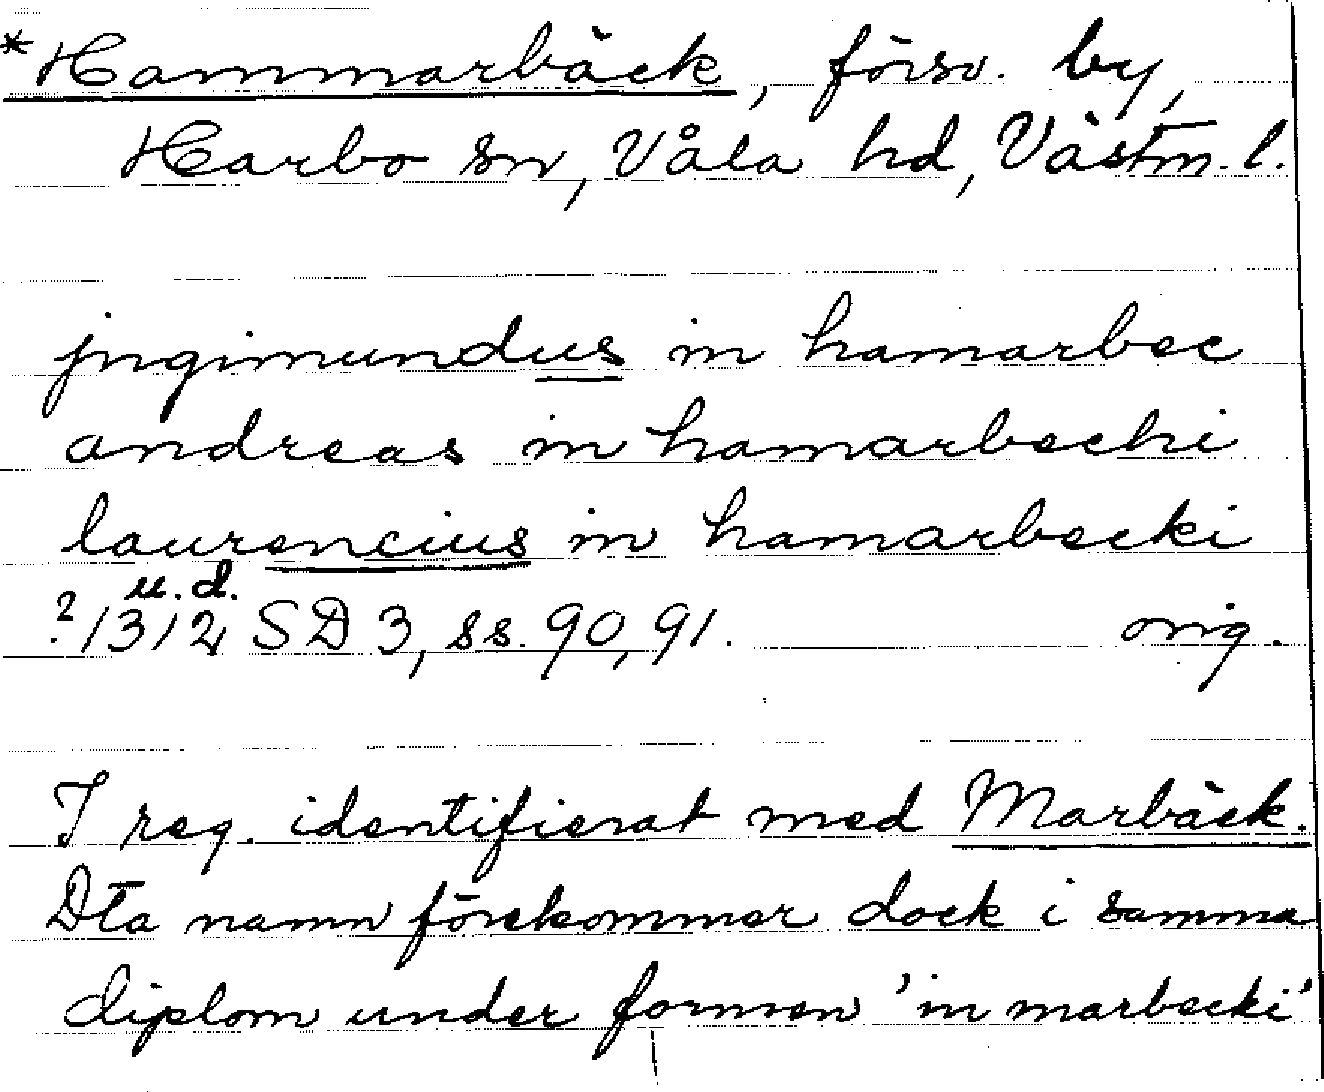 *Hammarbäck, försv. by,
Harbo sn, Våla hd, Västm. l.
jngimundus in hamarbec
andreas in hamarbechi
laurencius in hamarbecki
u.d.
?/1312 SD 3, ss. 90, 91. orig.
I reg. identifierat med Marbäck.
Dta namn förekommer dock i samma
diplom under formen 'in marbecki'